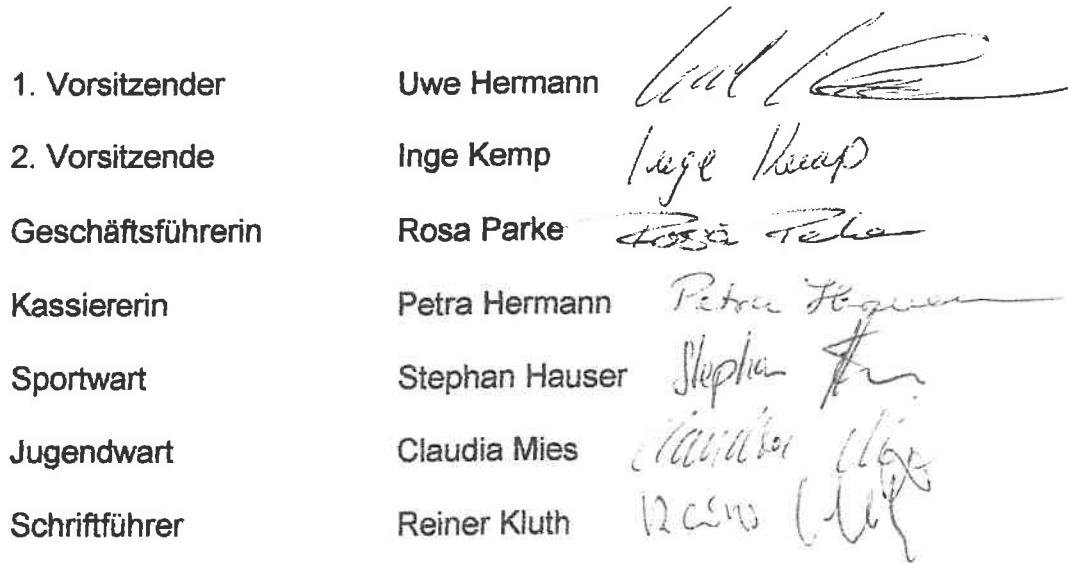 1. Vorsitzender Uwe Hermann
2. Vorsitzende Inge Kemp Inge Kemp
Geschäftsführerin Rosa Parke Rosa
Kassiererin Petra Hermann Petra
Sportwart Stephan Hauser Stephan
Jugendwart Claudia Mies Claudia
Schriftführer Reiner Kluth